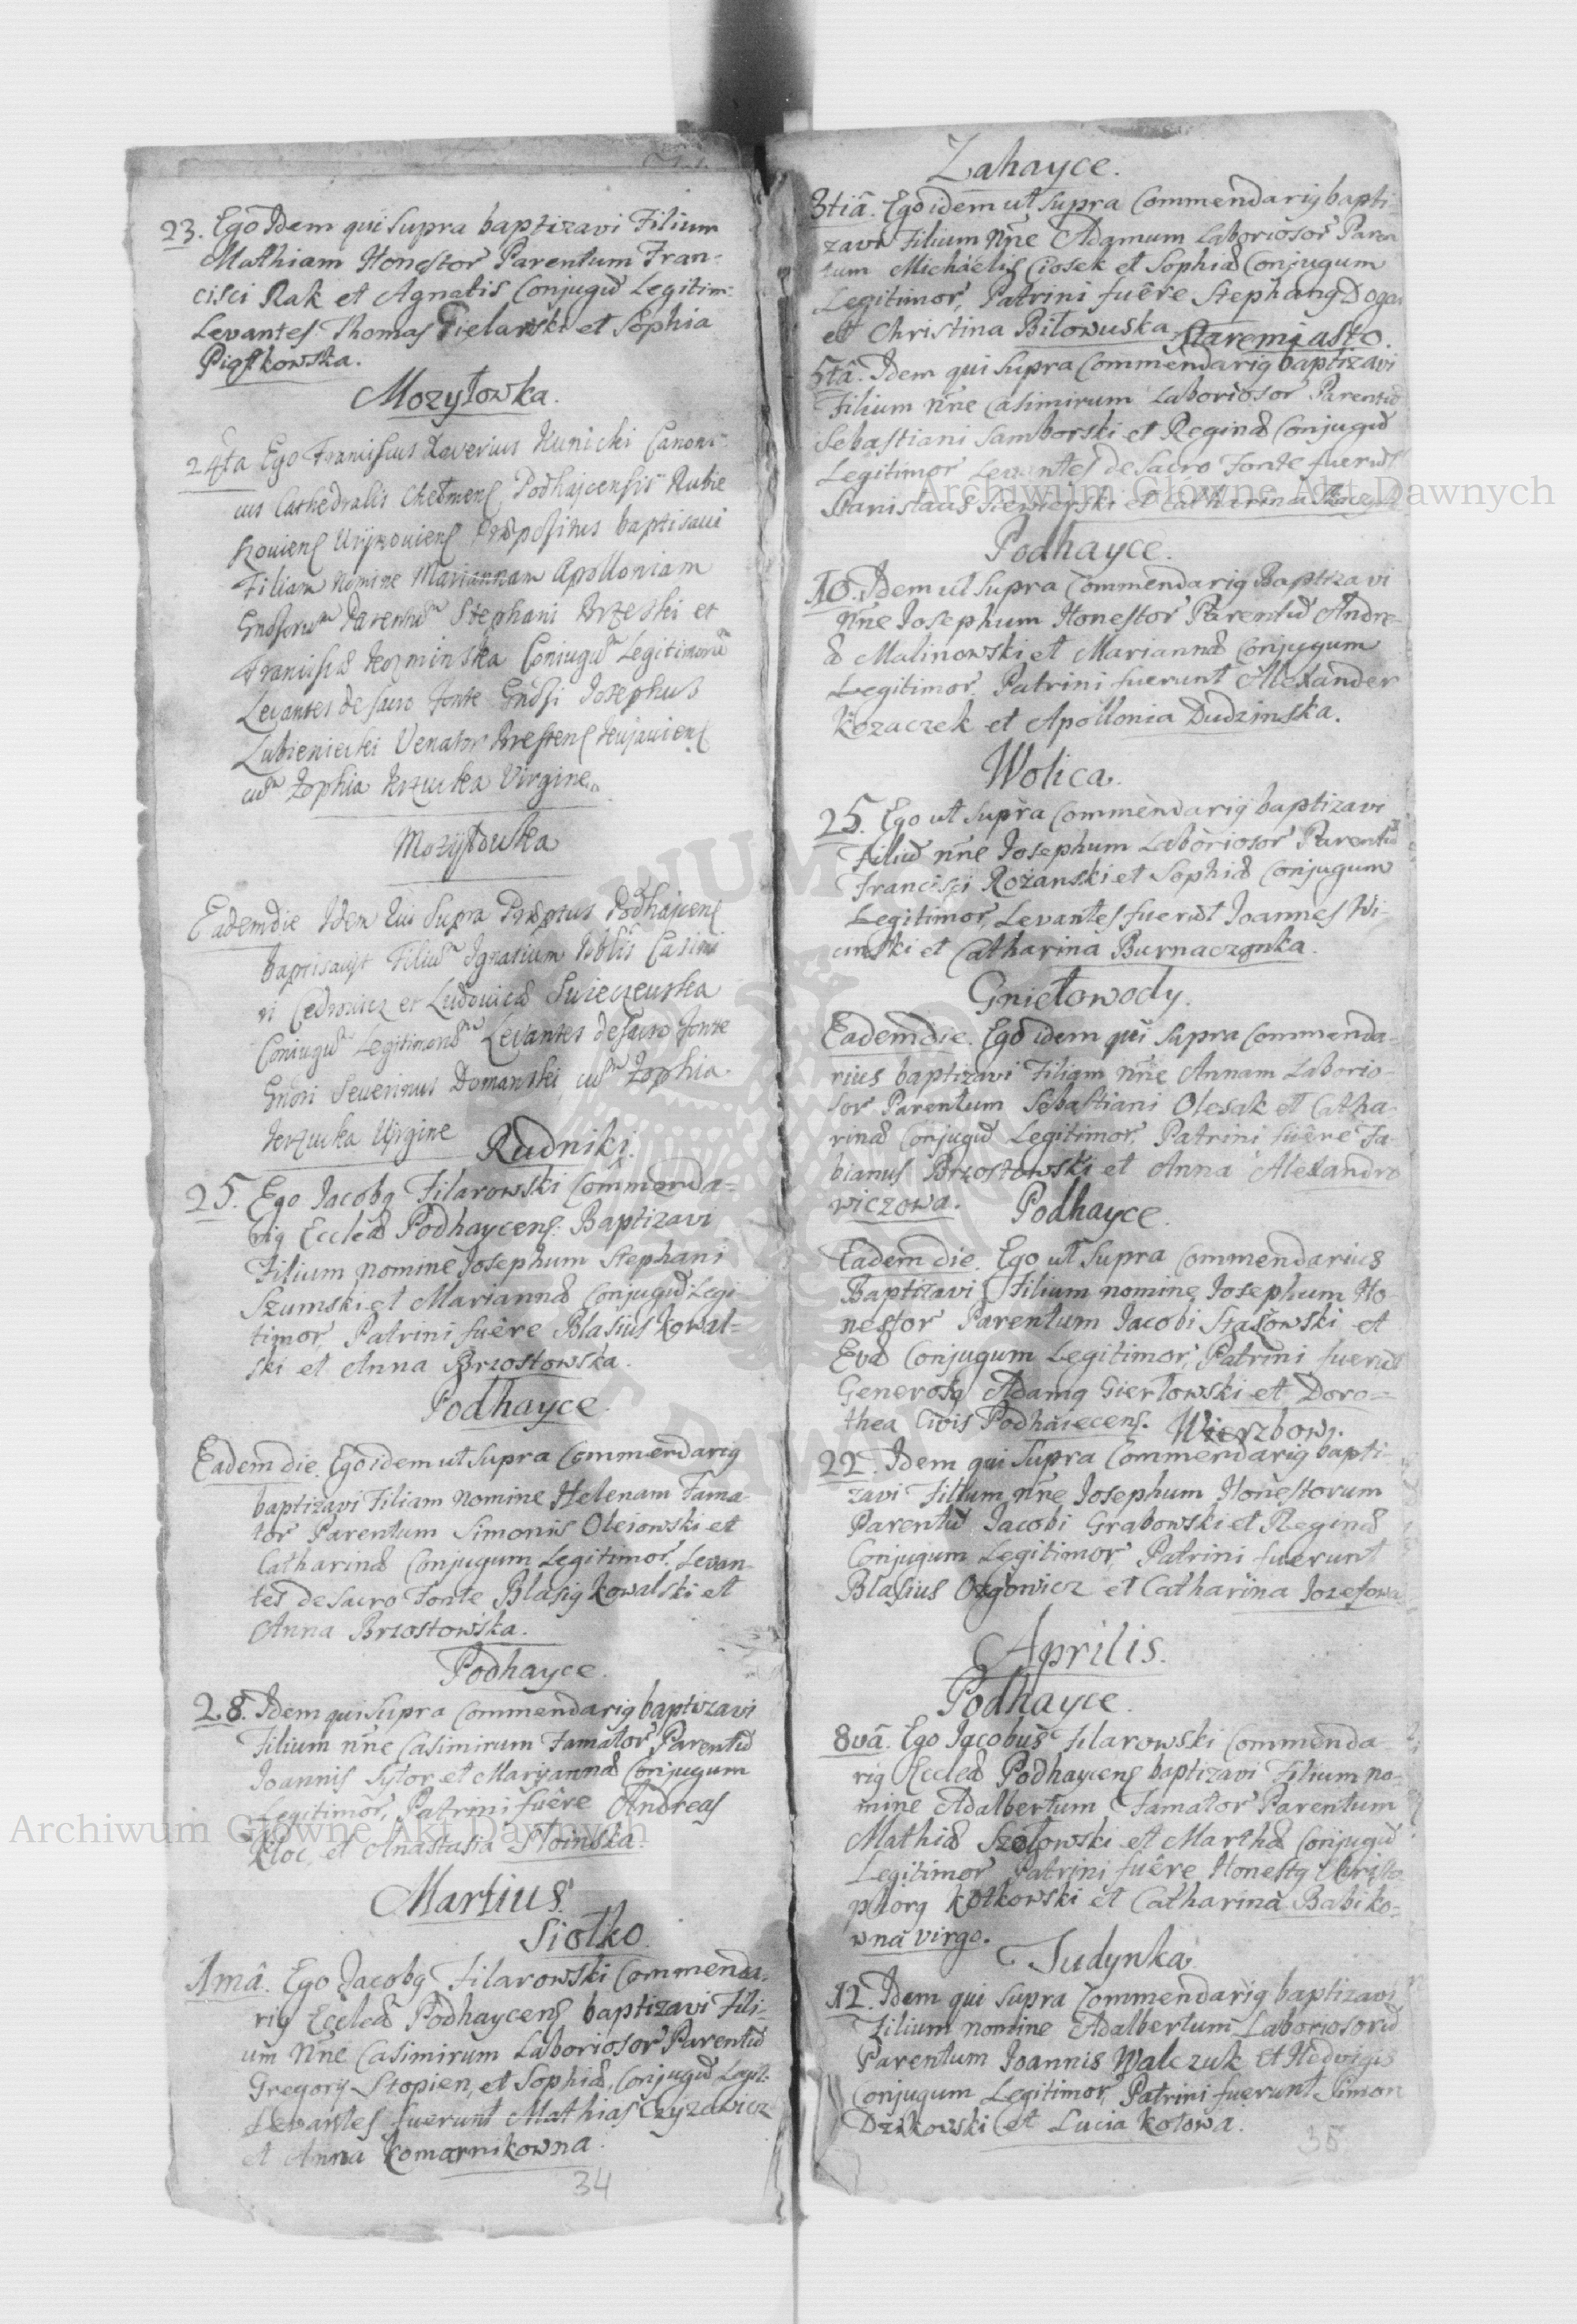 23. Ego Idem qui Supra baptizavi Filium
Mathiam Honestor Parentum Fran-
cisci Rak et Agnetis Conjugū Legitim:
Levantes Thomas Fielarski et Sophia
Piąstkowska.
Mozyłowka.
24ta Ego Franciscus Xaverius Kunicki Canoni-
cus Cathedralis Chełmens Podhajcensis Rubie
szoviens Præpositus baptisavi
Filiam Nomine Mariannam Apolloniam
Parentū Stephani et
Kozminska Conjugū Legitimorū
Levantes de sacro fonte Josephus
Lubieniecki Venator Kujaviens
cum Zophia Virgine
Mozyłowka
Eademdie Idem Qui Supra Podhajcens
baptisavit Filiū Ignatium Casimi
ri et Ludovicæ
Conjugū Legitimorū Levantes de sacro fonte
Severinus Domanski cum Zophia
Virgine
Rudniki.
25. Ego Jacobq Filarowski Commenda-
riq Eccleæ Podhaycens: Baptizavi
Filium nomine Josephum Stephani
Szumski et Mariannæ Conjugū Legi
timor, Patrini fuêre Blasius Kowal-
ski et Anna Brzostowska.
Podhayce.
Eadem die. Ego idem ut Supra Commendariq
baptizavi Filiam Nomine Helenam Fama-
tor Parentum Simonis Oleiowski et
Catharinæ Conjugum Legitimor. Levan-
tes de Sacro Fonte Blasiq Kowalski et
Anna Brzostowska.
Podhayce.
28. Idem qui Supra Commendariq baptizavi
Filium nn̄e Casimirum Famator Parentū
Joannis Sytor et Maryannæ Conjugum
Legitimor, Patrini fuêre Andreas
Kloc, et Anastasia Stoinska.
Martius.
Siołko.
1mâ. Ego Jacobq Filarowski Commenda-
riq Eccleæ Podhaycens baptizavi Fili-
um Nn̄e Casimirum Laboriosor Parentū
Gregorij Stopien, et Sophiæ, Conjugū Legit:
Levantes fuerunt Mathias Czyzewicz
et Anna Komarnikowna.
34
Zahayce.
3tiâ. Ego idem ut Supra Commendariq bapti-
zavi Filium Nn̄e Adamum Laboriosor Paren
tum Michaelis Ciosek et Sophiæ Conjugum
Legitimor, Patrini fuêre Stephanq Dogan
et Christina Biłowuska. Staremiasto.
5tâ. Idem qui Supra Commendariq baptizavi
Filium Nn̄e Casimirum Laboriosor Parentū
Sebastiani Samborski et Reginæ Conjugū
Legitimor Levantes de Sacro Fonte fuerūt
Stanislaus Siewierski et Catharina
Podhayce.
10. Idem ut Supra Commendariq Baptizavi
Nn̄e Josephum Honestor Parentū Andre-
æ Malinowski et Mariannæ Conjugum
Legitimor. Patrini fuerunt Alexander
Kozaczek et Apollonia Dudzinska.
Wolica.
25. Ego ut Supra Commendariq baptizavi
Filiū nn̄e Josephum Laboriosor Parentū
Francisci Rożanski et Sophiæ Conjugum
Legitimor, Levantes fuerūt Joannes Wi-
cinski et Catharina Burnaczonka.
Gniełowody.
Eadem die. Ego idem qui Supra Commenda-
rius baptizavi Filiam nn̄e Annam Laborio-
sor Parentum Sebastiani Olesak et Catha-
rinæ Conjugū Legitimor, Patrini fuêre Fa-
bianus Brzostowski et Anna Alexandro
wiczowa.
Podhayce.
Eadem die. Ego ut Supra Commendarius
Baptizavi Filium nomine Josephum Ho-
nestor Parentum Jacobi Staszowski et
Evæ Conjugum Legitimor, Patrini fuerūt
Generosq Adamq Gierłowski et Doro-
thea Civis Podhaiecens. Wierzbow.
22. Idem qui Supra Commendariq bapti-
zavi Filium nn̄e Josephum Honestorum
Parentū Jacobi Grabowski et Reginæ
Conjugum Legitimor, Patrini fuerunt
Blasius Ozgowicz et Catharina Jozefowa
Aprilis.
Podhayce.
8vâ. Ego Jacobus Filarowski Commenda-
riq Eccleæ Podhaycens baptizavi Filium no-
mine Adalbertum Famator Parentum
Mathiæ Szołowski et Marthæ Conjugū
Legitimor Patrini fuêre Honestq Christo-
phorq Kotkowski et Catharina Babiko-
wna virgo.
Judynka.
12. Idem qui Supra Commendariq baptizavi
Filium nomine Adalbertum Laboriosorū
Parentum Joannis Walczuk et Hedvigis
Conjugum Legitimor, Patrini fuerunt Simon
Dzikowski et Lucia Kotowa.
35
Archiwum Główne Akt Dawnych
Archiwum Główne Akt Dawnych